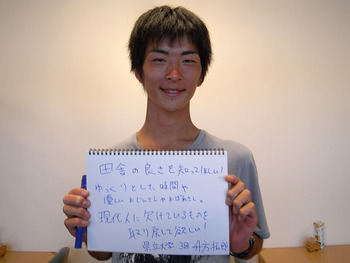 田舎の良さを知ってほしい!
ゆっくりとした時間や
優しいおじいちゃんおばあちゃん。
現代人に欠けているものを
取り戻して欲しい!
県立大学 3回 丹方拓郎